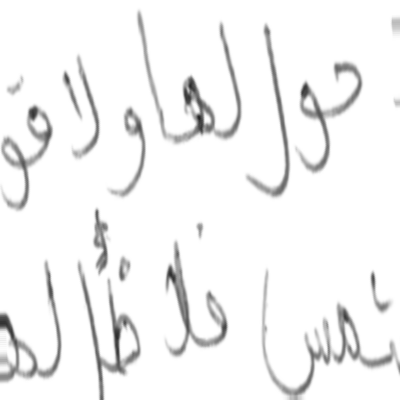 حول لها ولا قو
شمس فلا ظل لها